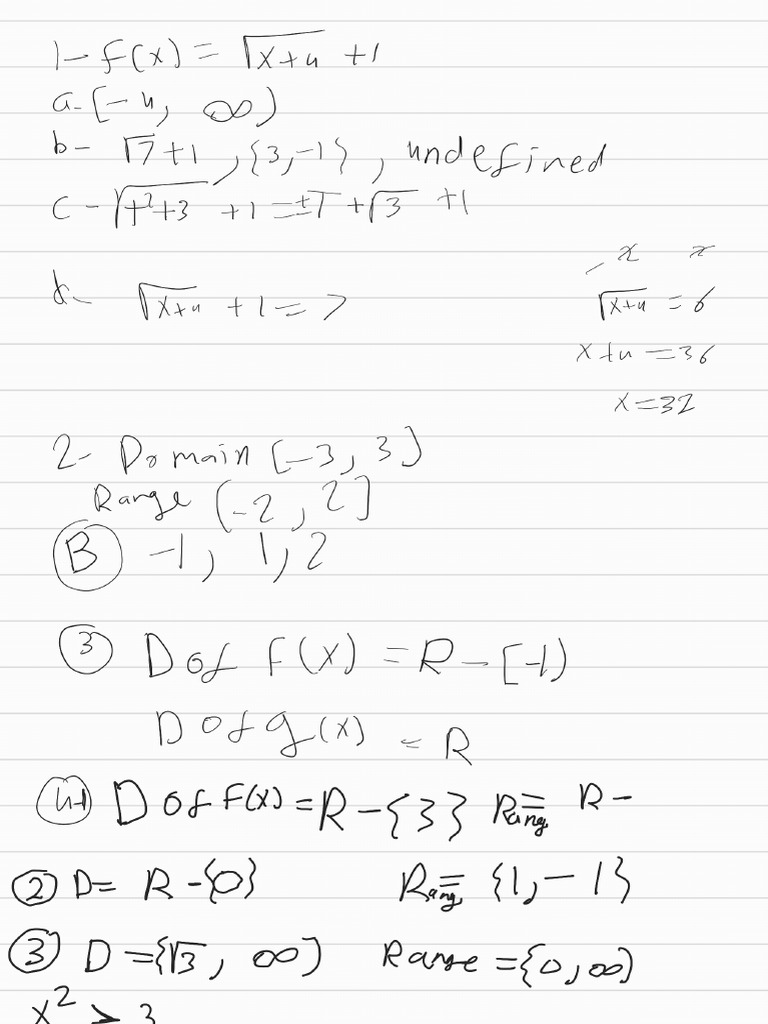 1- f(x) = √x+4 +1
a- [-4, ∞)
b- √7+1, {3,-1}, undefined
c- √t²+3 +1 = ±T+√3 +1
x x
d- √x+4 +1 = 7 √x+4 = 6
x+4 = 36
x = 32
2- Domain [-3, 3]
Range (-2, 2]
B -1, 1, 2
3 D of F(x) = R - [-1)
D of g(x) = R
4-1 D of F(x) = R - {3} Rang = R -
2 D = R - {0} Rang = {1, -1}
3 D = {√3, ∞) Range = {0, ∞)
x² > 3